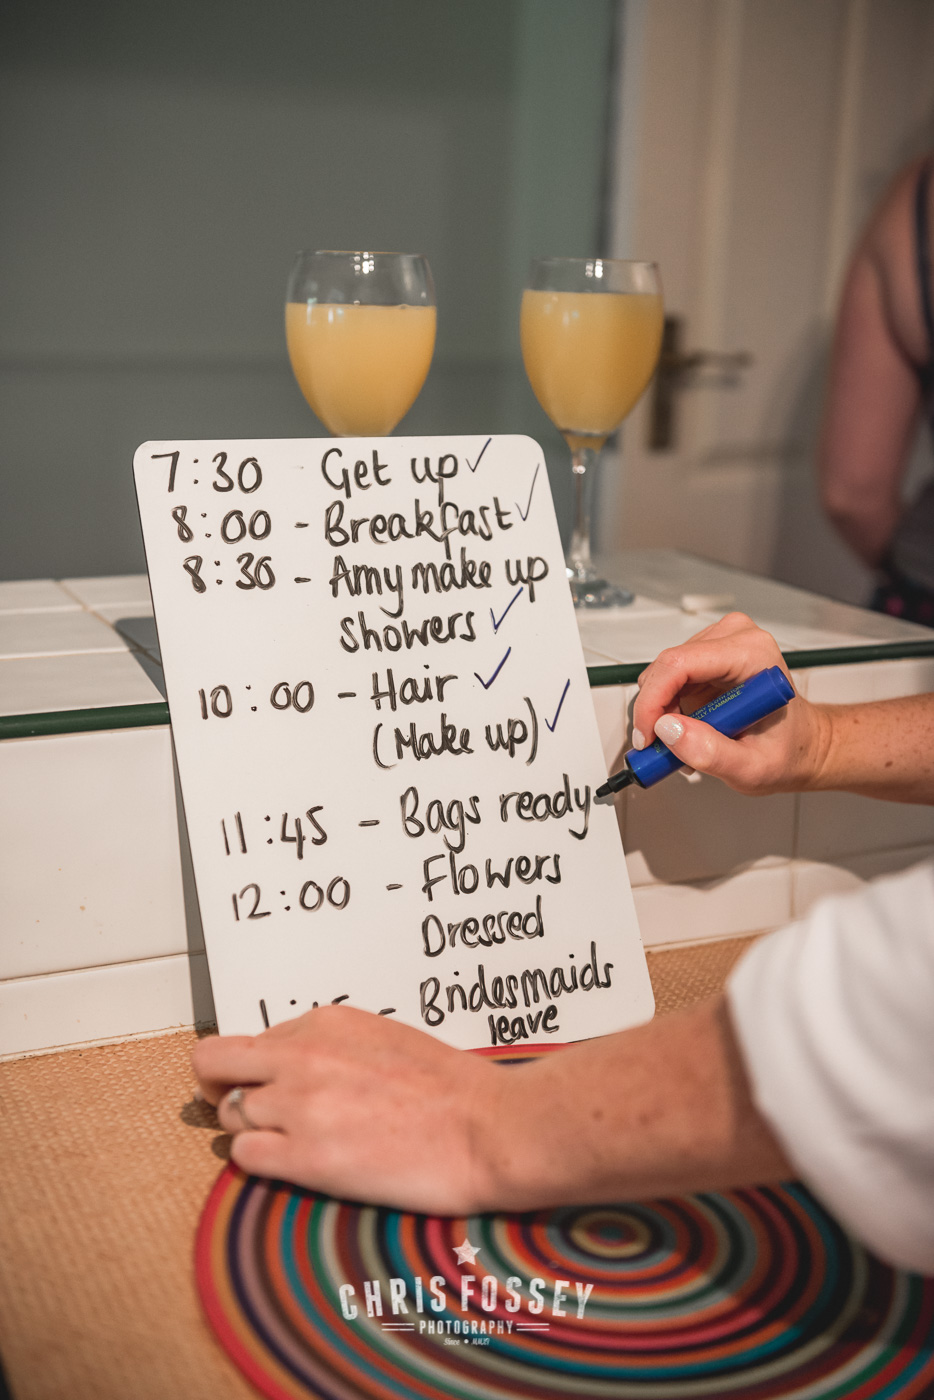 7:30 Get up ✓
8:00 - Breakfast ✓
8:30 - Amy make up
showers ✓
10:00 - Hair ✓
(Make up) ✓
11:45 - Bags ready
12:00 - Flowers
Dressed
- Bridesmaids
leave
CHRIS FOSSEY
PHOTOGRAPHY